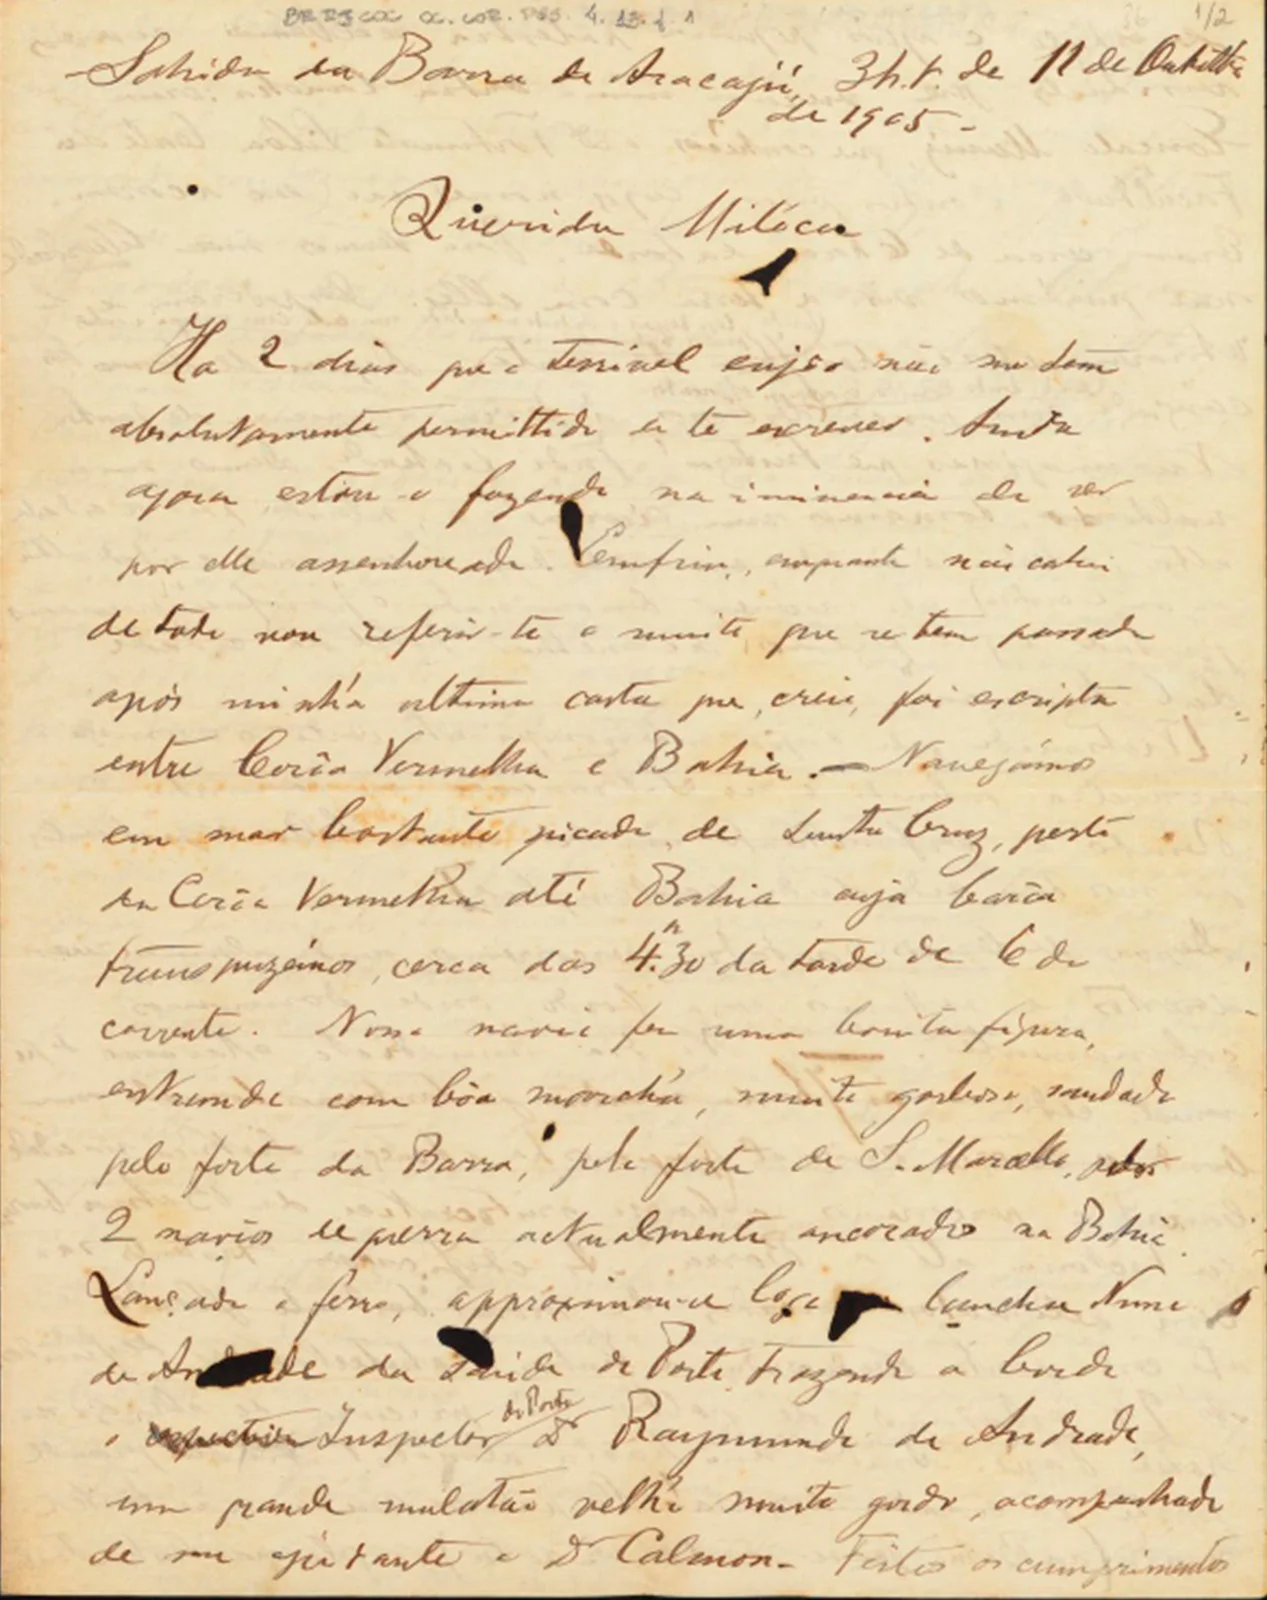 BR RJCOC OC. COR. PES. 4. 13. 1. 1
1/2
Sahida da Barra de Aracajú, 3h.t. de 11 de Outubro
de 1905 -
Querida Milóca
Ha 2 dias que o terrivel enjôo não me tem
absolutamente permittido a te escrever. Ainda
agora estou-o fazendo na iminencia de ser
por elle assenhoreado. emquanto não cahir
de todo vou referir-te o muito que se tem passado
após minha ultima carta que, creio, foi escripta
entre Corôa Vermelha e Bahia. — Navegámos
em mar bastante picado, de Santa Cruz, perto
da Corôa Vermelha até Bahia cuja barra
transpuzémos, cerca das 4.h30 da tarde de 6 do
corrente. Nosso navio fez uma bonita figura,
entrando com bôa marcha, muito garboso, saudado
pelo forte da Barra, pelo forte de S. Marcello, pelos
2 navios de guerra actualmente ancorados na Bahia.
Lançado o ferro, approximou-se logo lancha Nuno
de Andrade da Saúde do Porto trazendo a bordo
o Inspector do Porto Dr Raymundo de Andrade,
um grande mulatão velho muito gordo, acompanhado
de seu ajudante o Dr Calmon - Feitos os cumprimentos